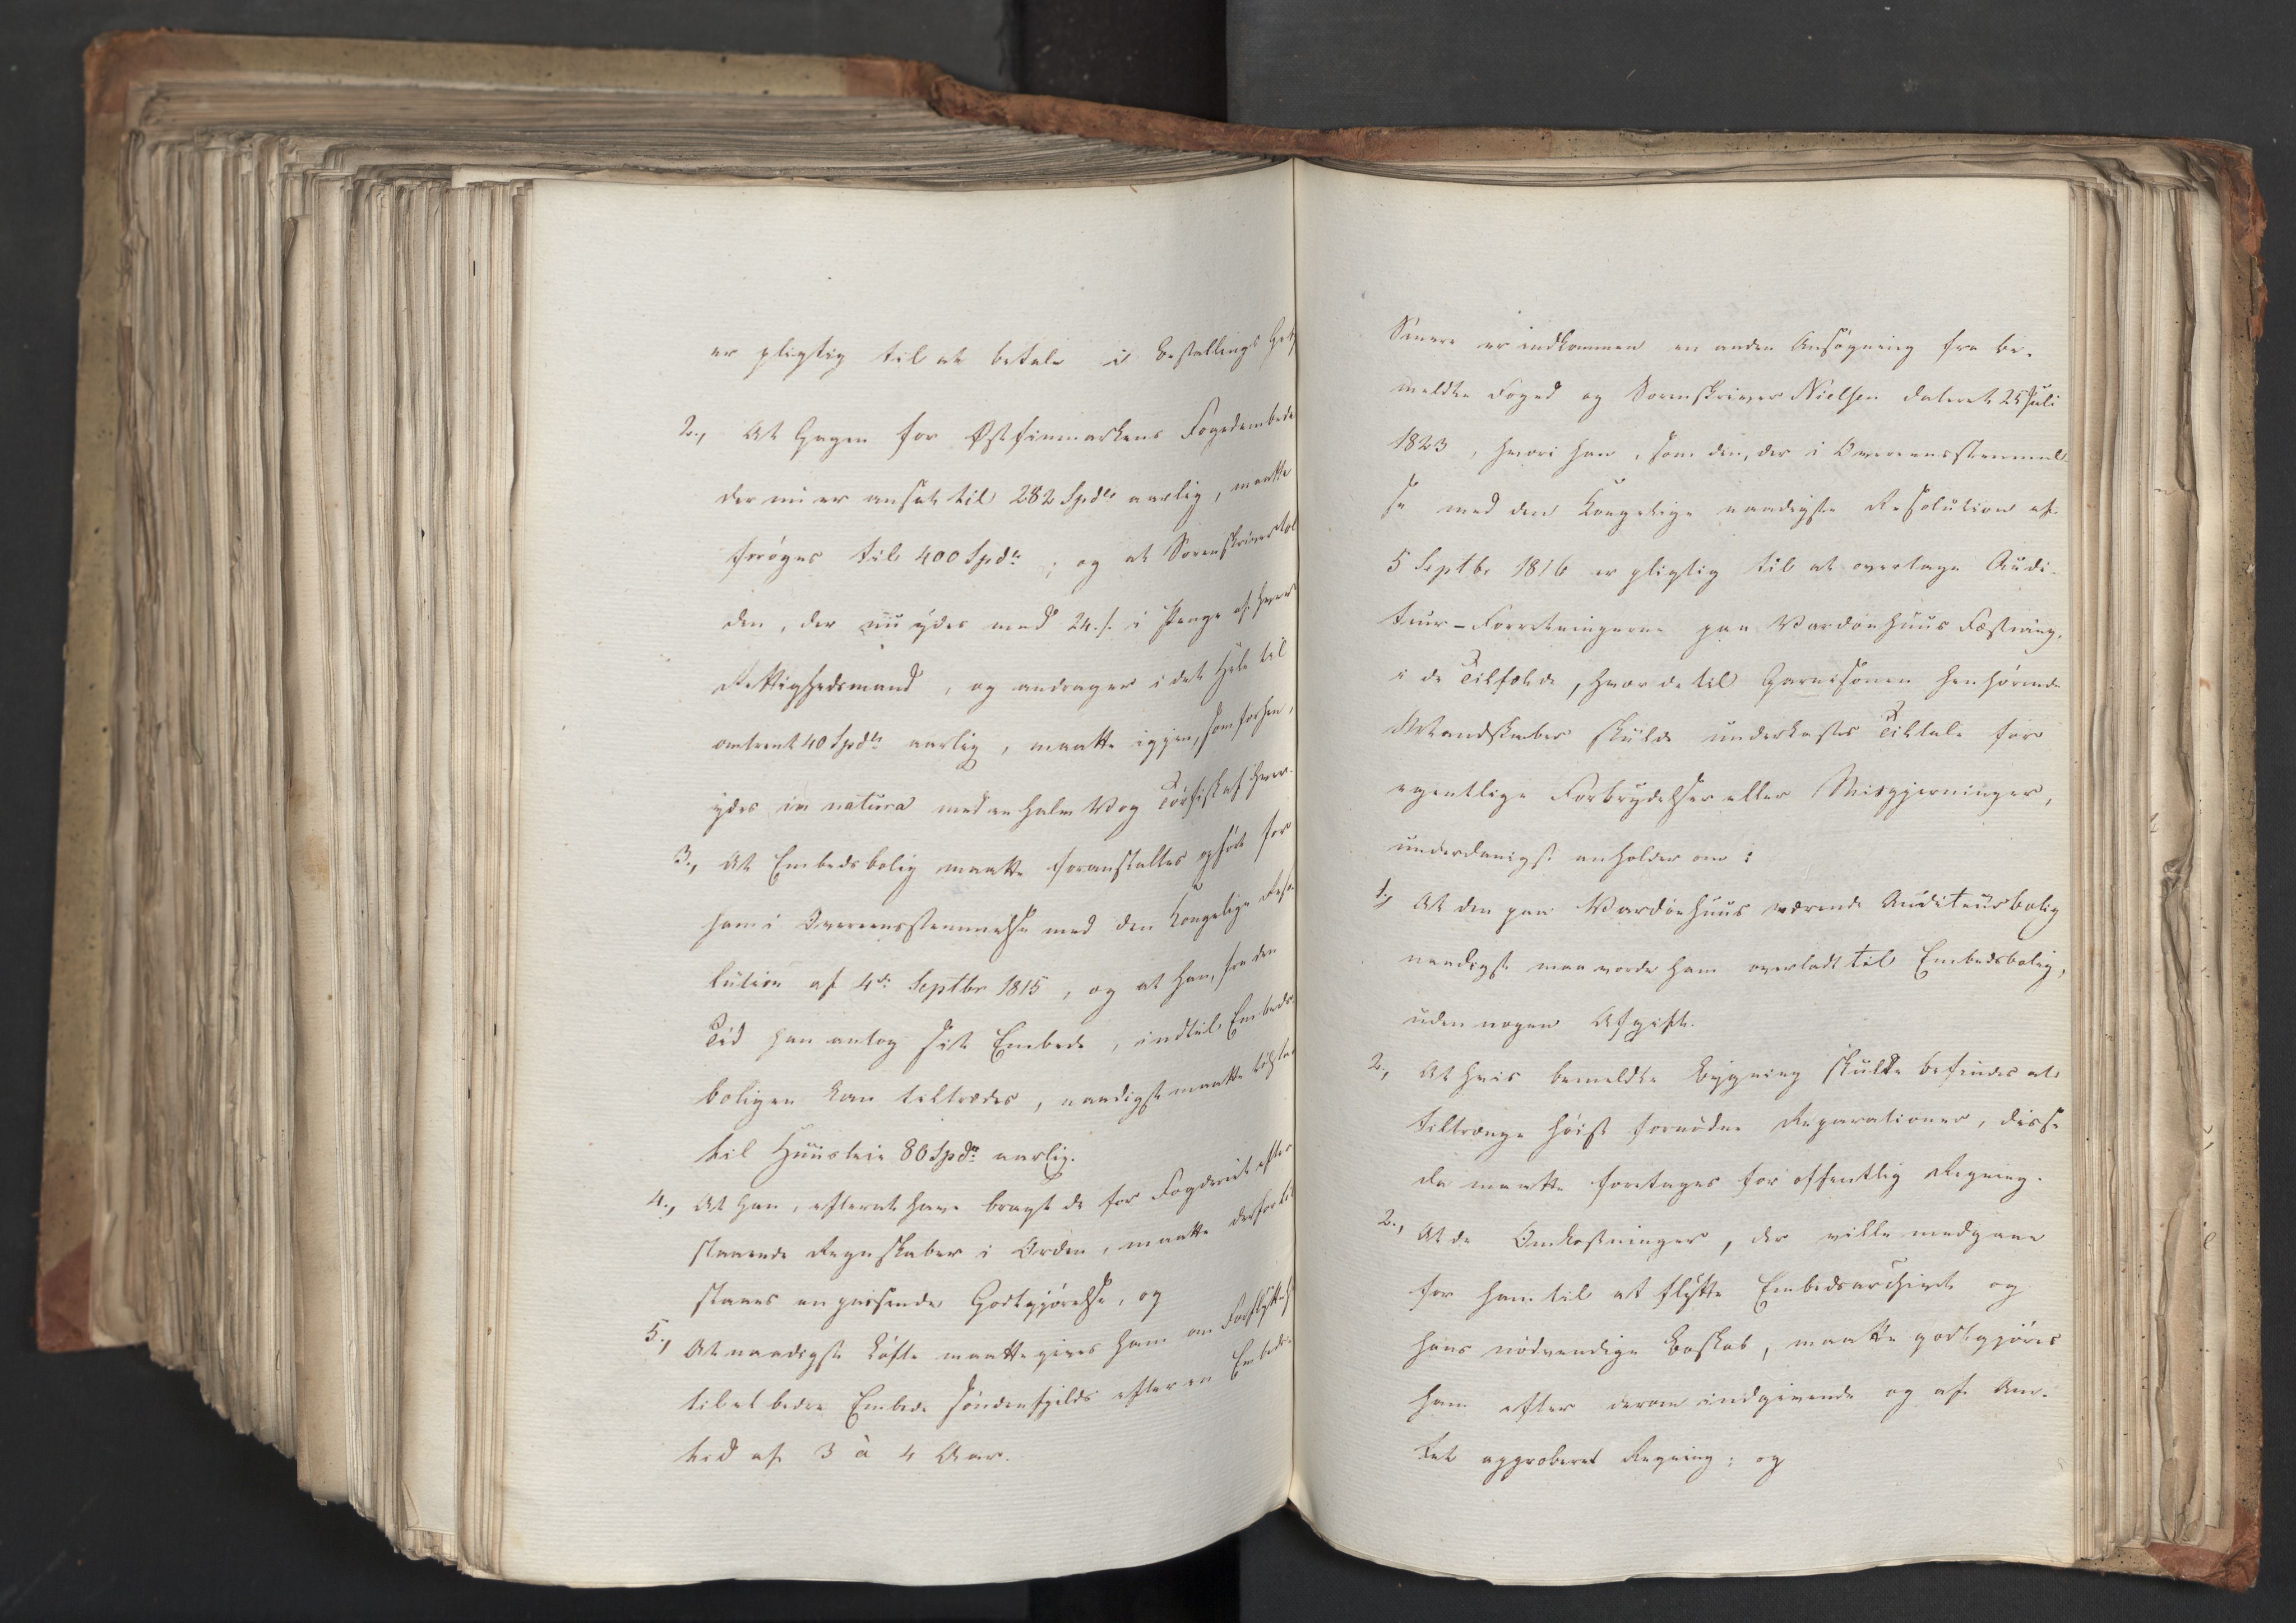 er pligtig til at betale i Bestallings
2., At Gagen for Østfinmarkens Fogedembede
der nu er ansat til 282 Spdlr aarlig, maatte
forøges til 400 Spdlr; og at Sorenskrivertol
den, der nu ydes med 24 s. i Penge af hver
Rettighedsmand, og andrager i det Hele til
omtrent 40 Spdlr aarlig, maatte igjen, som forhen,
ydes in natura med en halv Vog Törfisk af hver.
3., At Embedsbolig maatte foranstaltes opført for
ham i Overeensstemmelse med den Kongelige Reso
lution af 4de Septbr 1815, og at han, fra den
Tid han antog sit Embede, indtil Embeds-
boligen kan tiltrædes, naadigst maatte
til Huusleie 80 Spdlr aarlig.
4., At han, efter at have bragt de for Fogderiet efter
staaende Regnskaber i Orden, maatte derfor til
staaes en passende Godtgjörelse, og
5., At naadigst Löfte maatte gives ham om Forflyttelse
til et bedre Embede söndenfjelds efter en Embeds-
tid af 3 à 4 Aar.
Senere er indkommen en anden Ansögning fra be-
meldte Foged og Sorenskriver Nielsen dateret 25 Juli
1823, hvori han, som den, der i Overeensstemmel-
se med den Kongelige naadigste Resolution af
5 Septbr 1816 er pligtig til at overtage Audi-
teur-Forretningerne paa Vardöehuus Fæstning,
i de Tilfælde, hvor de til Garnisonen henhörende
Mandskaber skulde underkastes Tiltale for
egentlige Forbrydelser eller Misgjerninger,
underdanigst anholder om:
1., At den paa Vardöehuus værende Auditeurbolig
naadigst maa vorde ham overladt til Embedsbolig,
uden nogen Afgift.
2., At hvis bemeldte Bygning skulde befindes at
tiltrænge höist fornödne Reparationer, disse
da maatte foretages for offentlig Regning.
2., At de Omkostninger, der ville medgaae
for ham til at flytte Embedsarchivet og
hans nödvendige Boskab, maatte godtgjöres
ham efter derom indgivende og af Am-
tet approberet Regning; og